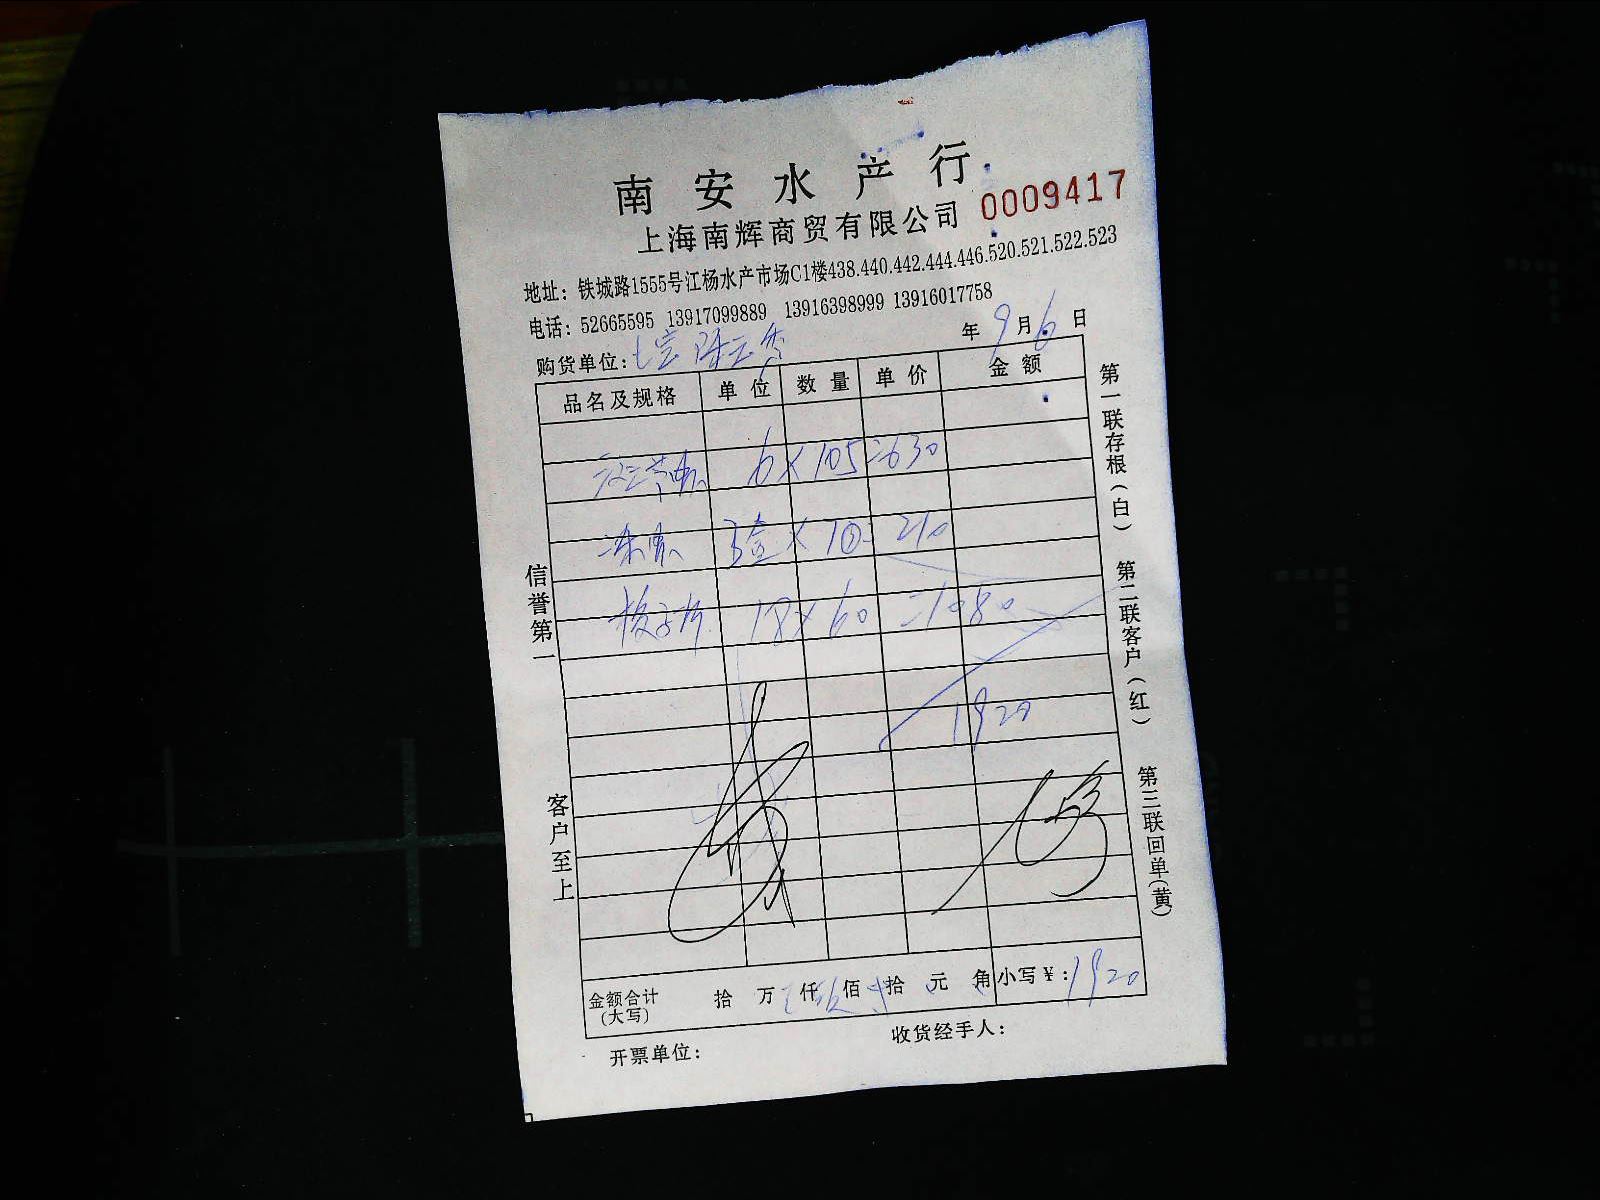 南安水产行
上海南辉商贸有限公司 0009417
地址：铁城路1555号江杨水产市场C1楼438.440.442.444.446.520.521.522.523
电话：52665595 13917099889 13916398999 13916017758
年 9 月 6 日
购货单位：七宝
品名及规格 单位 数量 单价 金额
6 × 105 = 630
3盒 × 210
18 × 60 = 1080
1920
金额合计（大写） 拾 万 仟 佰 拾 元 角 小写￥：1920
开票单位： 收货经手人：
信誉第一
客户至上
第一联存根（白）
第二联客户（红）
第三联回单（黄）